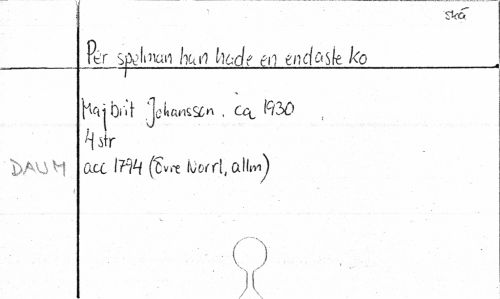 skå
Per spelman han hade en endaste ko
Majbrit Johansson. ca 1930
4 str
DAUM acc 1794 (Övre Norrl, allm)